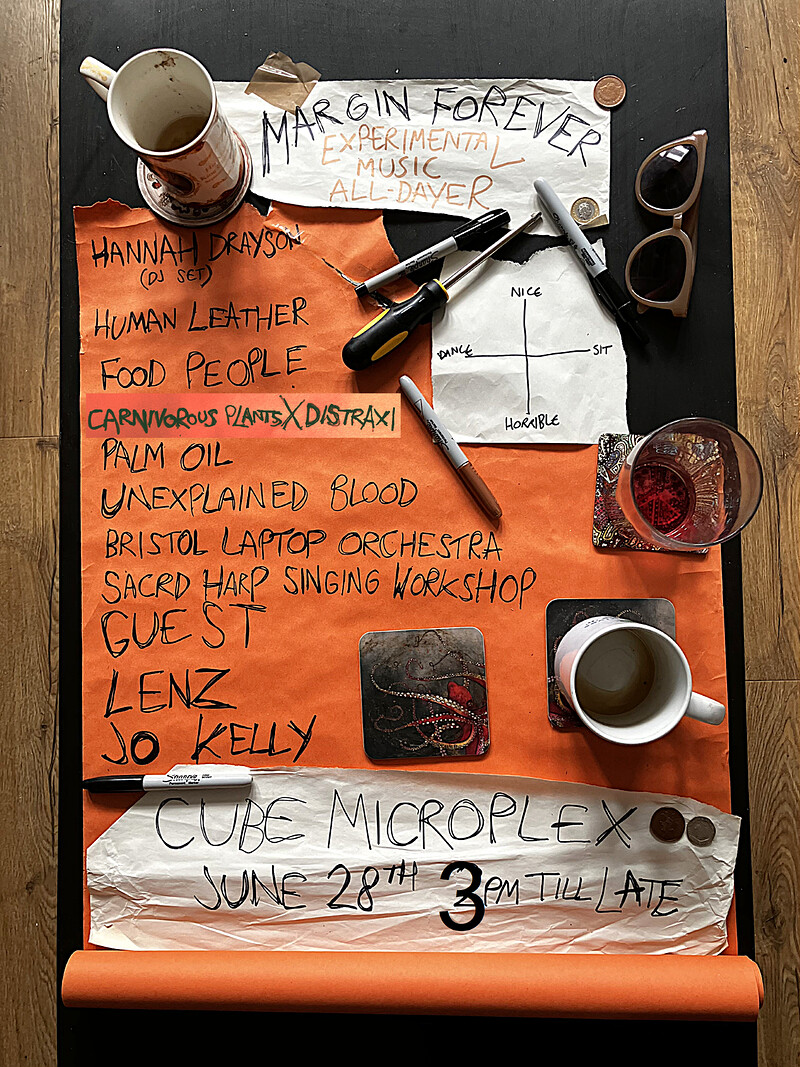 MARGIN FOREVER
EXPERIMENTAL
MUSIC
ALL-DAYER
HANNAH DRAYSON
(DJ SET)
HUMAN LEATHER
FOOD PEOPLE
CARNIVOROUS PLANTS X DISTRAXI
PALM OIL
UNEXPLAINED BLOOD
BRISTOL LAPTOP ORCHESTRA
SACRD HARP SINGING WORKSHOP
GUEST
LENZ
JO KELLY
NICE
DANCE
SIT
HORRIBLE
Sharpie
CUBE MICROPLEX
JUNE 28TH 3PM TILL LATE